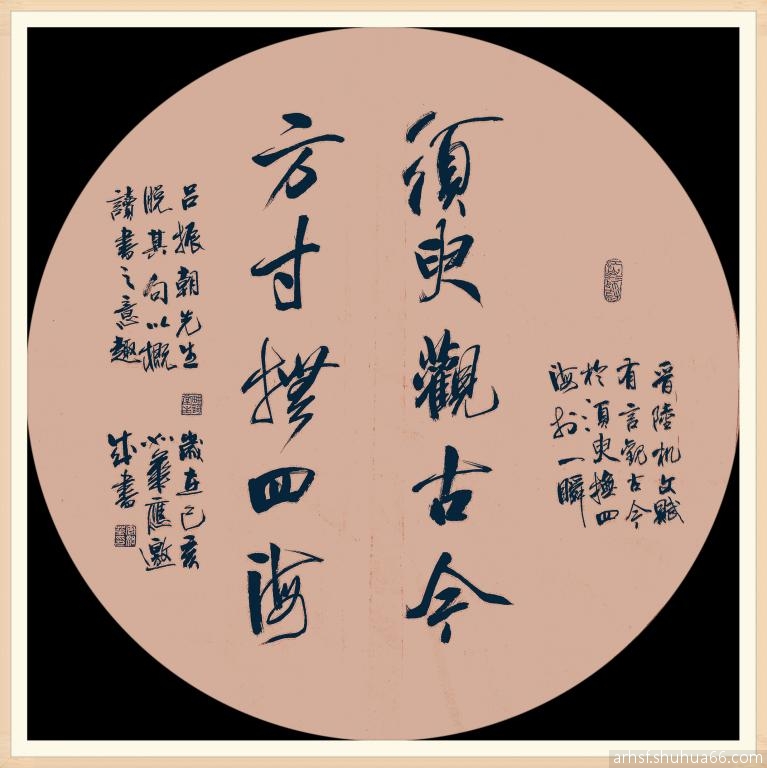 須臾觀古今
方寸撫四海
晋陸机文賦
有言觀古今
於須臾撫四
海於一瞬
吕振朝先生
脱其句以概
讀書之意趣
歲在己亥
華應邀
书書
arhsf.shuhua66.com